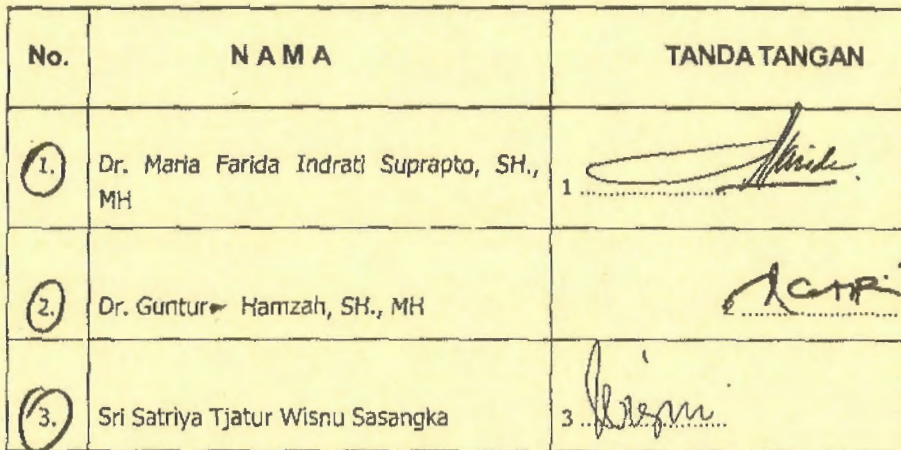 No. NAMA TANDA TANGAN
1. Dr. Maria Farida Indrati Suprapto, SH.,
MH
1 ....................
2. Dr. Guntur Hamzah, SH., MH
2 ....................
3. Sri Satriya Tjatur Wisnu Sasangka
3 ....................